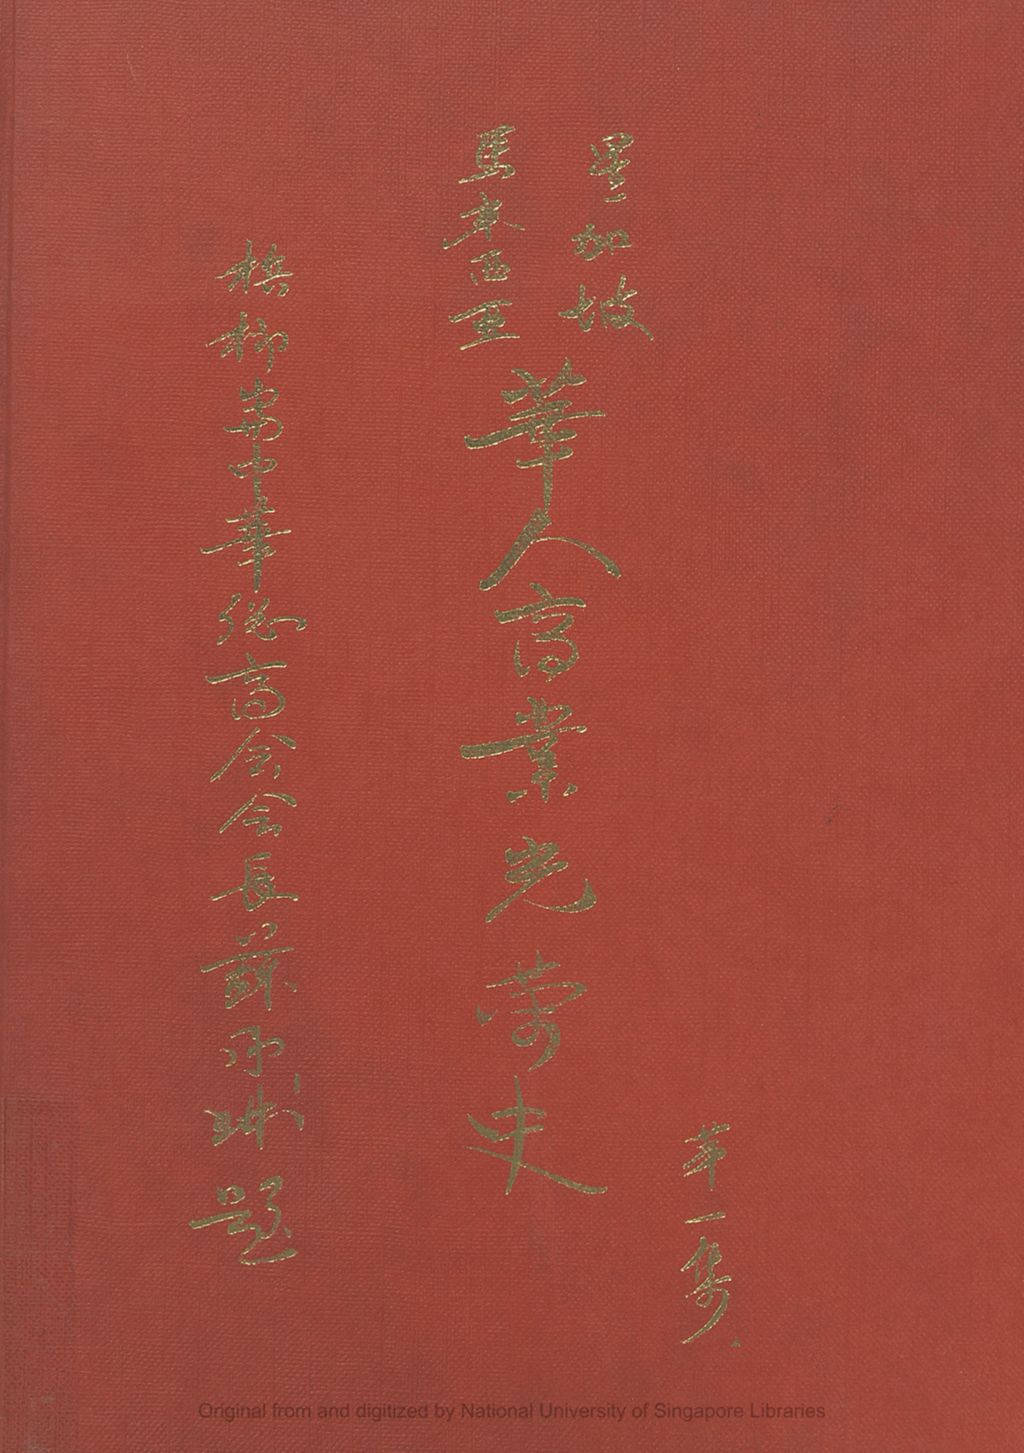 星加坡
馬来西亞
華人商業光榮史
第一集
梹榔嶼中華總商会会長蘇承球題
Original from and digitized by National University of Singapore Libraries